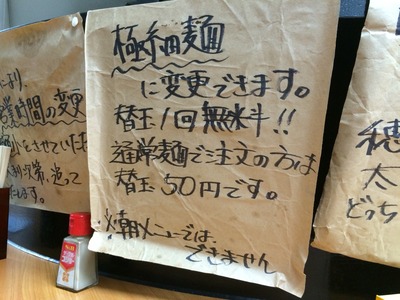 極細麺
に変更できます。
替玉1回無料!!
通常麺でご注文の方は
替玉50円です。
※朝メニューでは、
できません
より、
営業時間の変更
をさせていただ
次第、追って
します。
穂
太
どっち
S&B